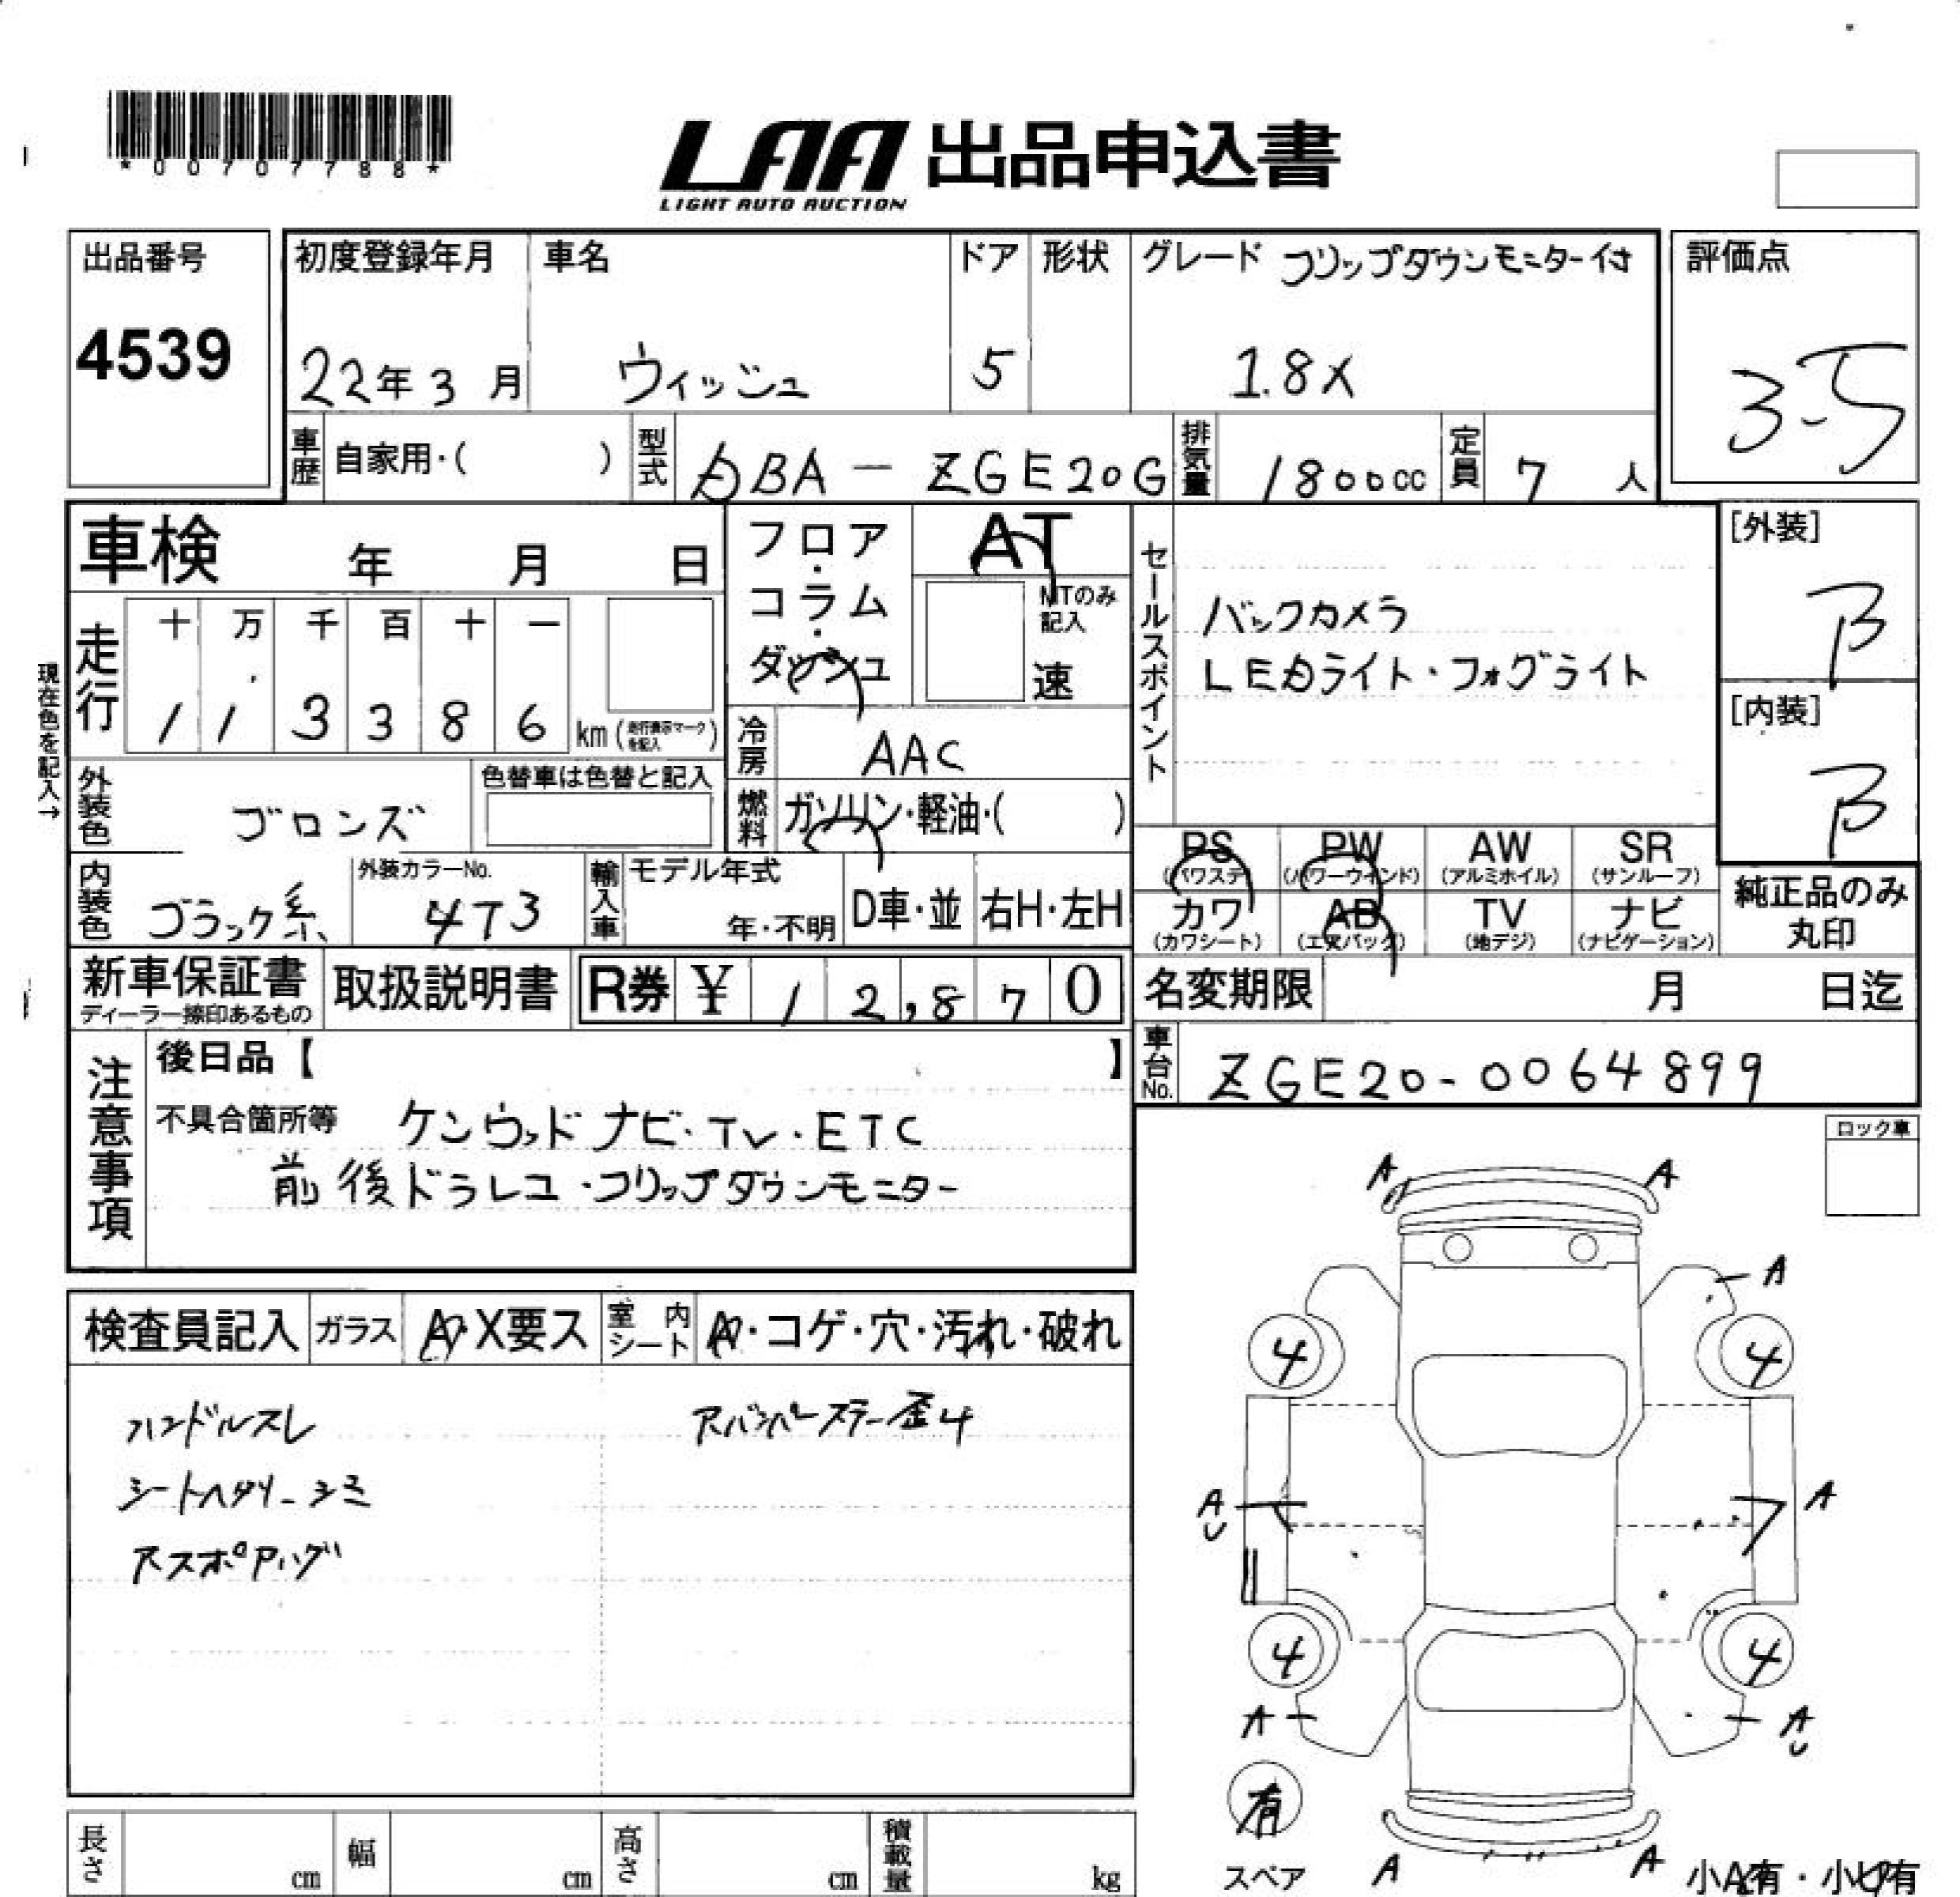 *00707788*
LAA 出品申込書
LIGHT AUTO AUCTION
出品番号
4539
初度登録年月
22年 3 月
車名
ウィッシュ
ドア
5
形状
グレード フリップダウンモニター付
1.8X
評価点
3-5
車歴 自家用・( )
型式 DBA - ZGE20G
排気量 1800cc
定員 7 人
車検 年 月 日
走行 十 万 千 百 十 一
1 1 3 3 8 6 km (走行表示マークを記入)
現在色を記入→
外装色 ブロンズ
色替車は色替と記入
内装色 ブラック系
外装カラーNo.
4T3
フロア・コラム・ダッシュ
AT
MTのみ記入
速
冷房 AAC
燃料 ガソリン・軽油・( )
輸入車 モデル年式
年・不明
D車・並
右H・左H
セールスポイント
バックカメラ
LEDライト・フォグライト
[外装]
B
[内装]
B
PS (パワステ)
PW (パワーウインド)
AW (アルミホイル)
SR (サンルーフ)
カワ (カワシート)
AB (エアバッグ)
TV (地デジ)
ナビ (ナビゲーション)
純正品のみ
丸印
新車保証書
ディーラー捺印あるもの
取扱説明書
R券 ¥ 1 2,8 7 0
名変期限 月 日迄
車台No. ZGE20-0064899
注意事項
後日品【 】
不具合箇所等 ケンウッド ナビ・TV・ETC
前後ドラレコ・フリップダウンモニター
ロック車
検査員記入
ガラス A・X要ス
室内シート A・コゲ・穴・汚れ・破れ
ハンドルスレ
シートヘタリ-シミ
アバンパーステー歪4
A A
A
4 4
A A
U
4 4
A A
U
有
スペア
A A
小A有・小U有
長さ cm
幅 cm
高さ cm
積載量 kg